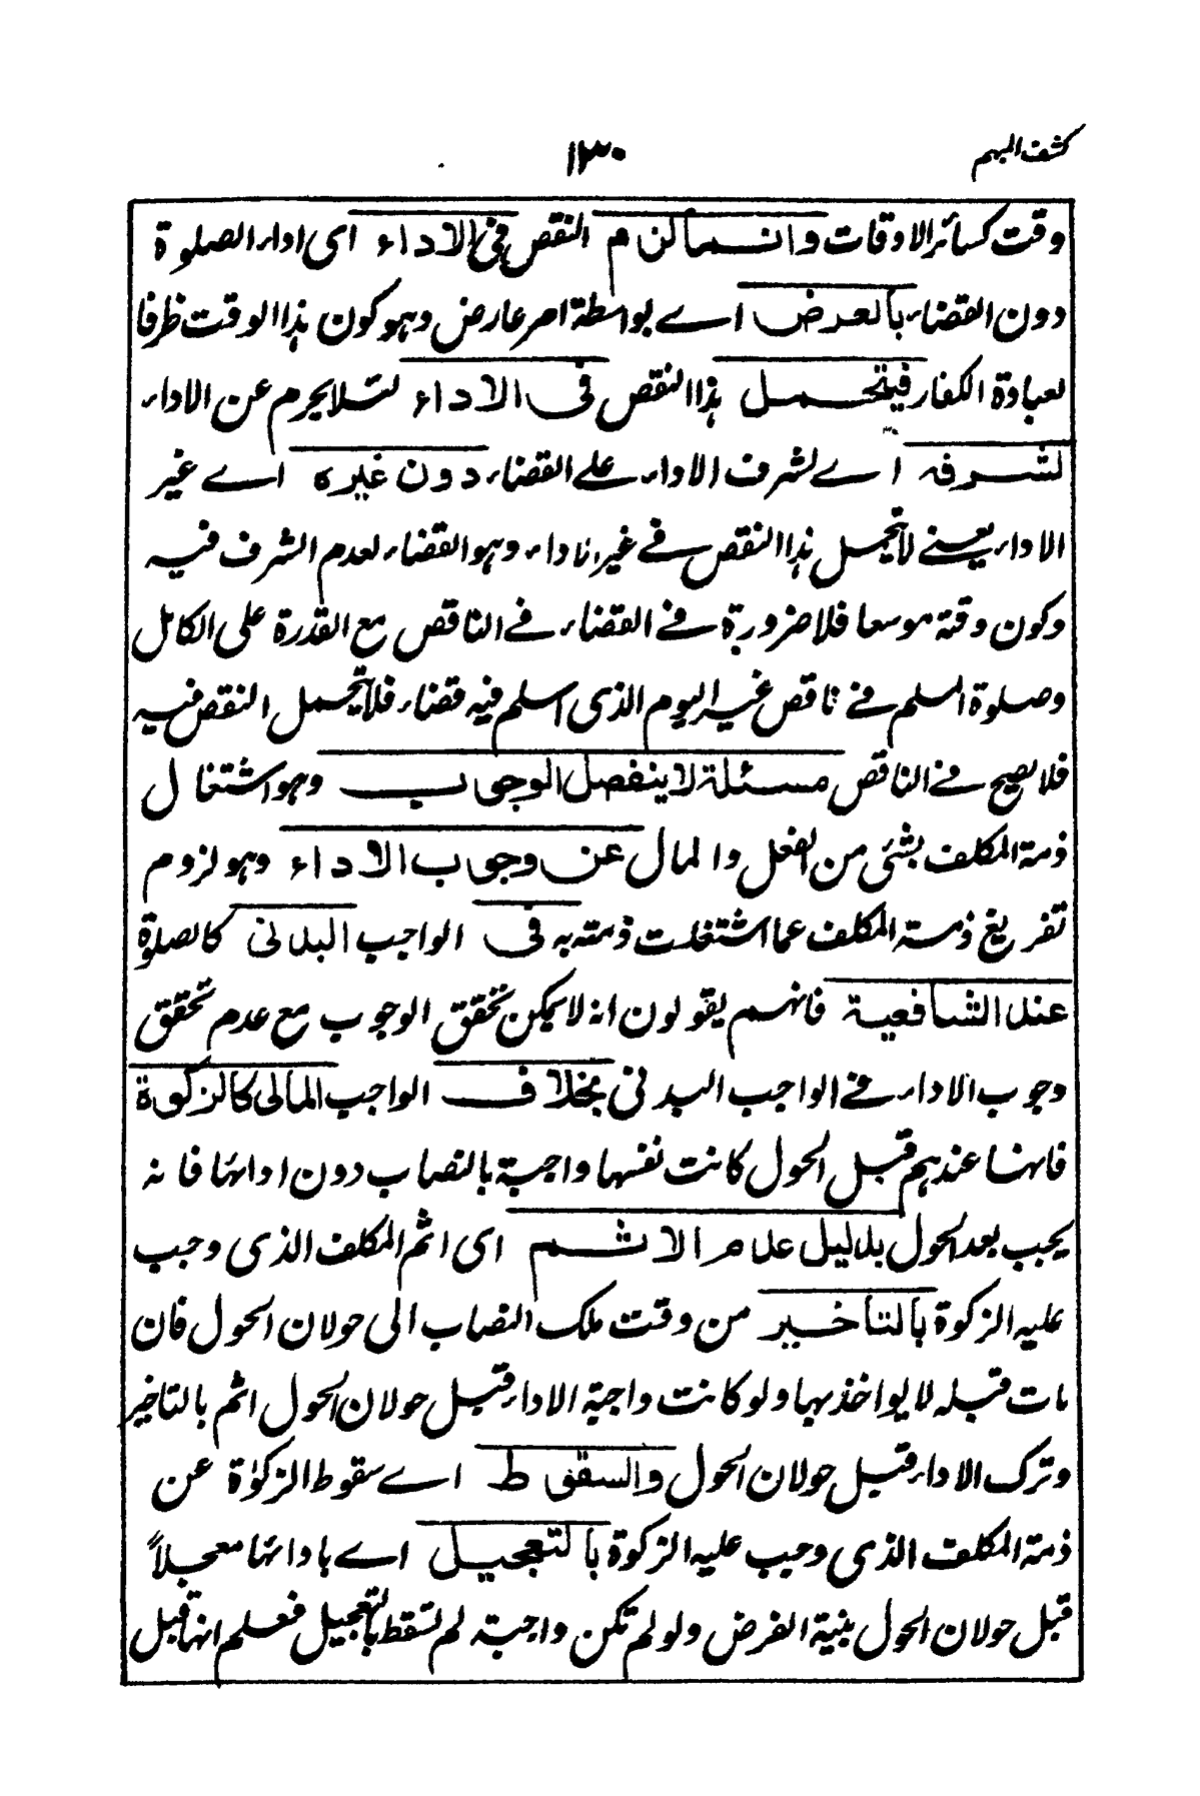 كشف المبهم
١٣٠
وقت كسائر الاوقات وانما لزم النقص في الاداء اى اداء الصلوة
دون القضاء بالعرض اے بواسطة امر عارض وهو كون هذا الوقت ظرفا
لعبادة الكفار فيتحمل هذا النقص فى الاداء لئلا يحرم عن الاداء
لشرفه اے لشرف الاداء علے القضاء دون غيره اے غير
الاداء يعنے لا يتحمل هذا النقص فے غير الاداء وهو القضاء لعدم الشرف فيه
وكون وقته موسعا فلا ضرورة فے القضاء فے الناقص مع القدرة على الكامل
وصلوة المسلم فے ناقص غير اليوم الذى اسلم فيه قضاء فلا يتحمل النقص فيه
فلا يصح فے الناقص مسئلة لا ينفصل الوجوب وهو اشتغال
ذمة المكلف بشئ من الفعل والمال عن وجوب الاداء وهو لزوم
تفريغ ذمة المكلف عما اشتغلت ذمته به فى الواجب البدنى كالصلوة
عند الشافعية فانهم يقولون انه لا يمكن تحقق الوجوب مع عدم تحقق
وجوب الاداء فے الواجب البدنى بخلاف الواجب المالى كالزكوة
فانها عندهم قبل الحول كانت نفسها واجبة بالنصاب دون ادائها فانه
يجب بعد الحول بدليل عدم الاثم اى اثم المكلف الذى وجب
عليه الزكوة بالتاخير من وقت ملك النصاب الى حولان الحول فان
مات قبله لا يواخذ بها ولو كانت واجبة الاداء قبل حولان الحول اثم بالتاخير
وترك الاداء قبل حولان الحول والسقوط اے سقوط الزكوٰة عن
ذمة المكلف الذى وجب عليه الزكوة بالتعجيل اے بادائها معجلاً
قبل حولان الحول بنية الفرض ولو لم تكن واجبة لم تسقط بالتعجيل فعلم انها قبل